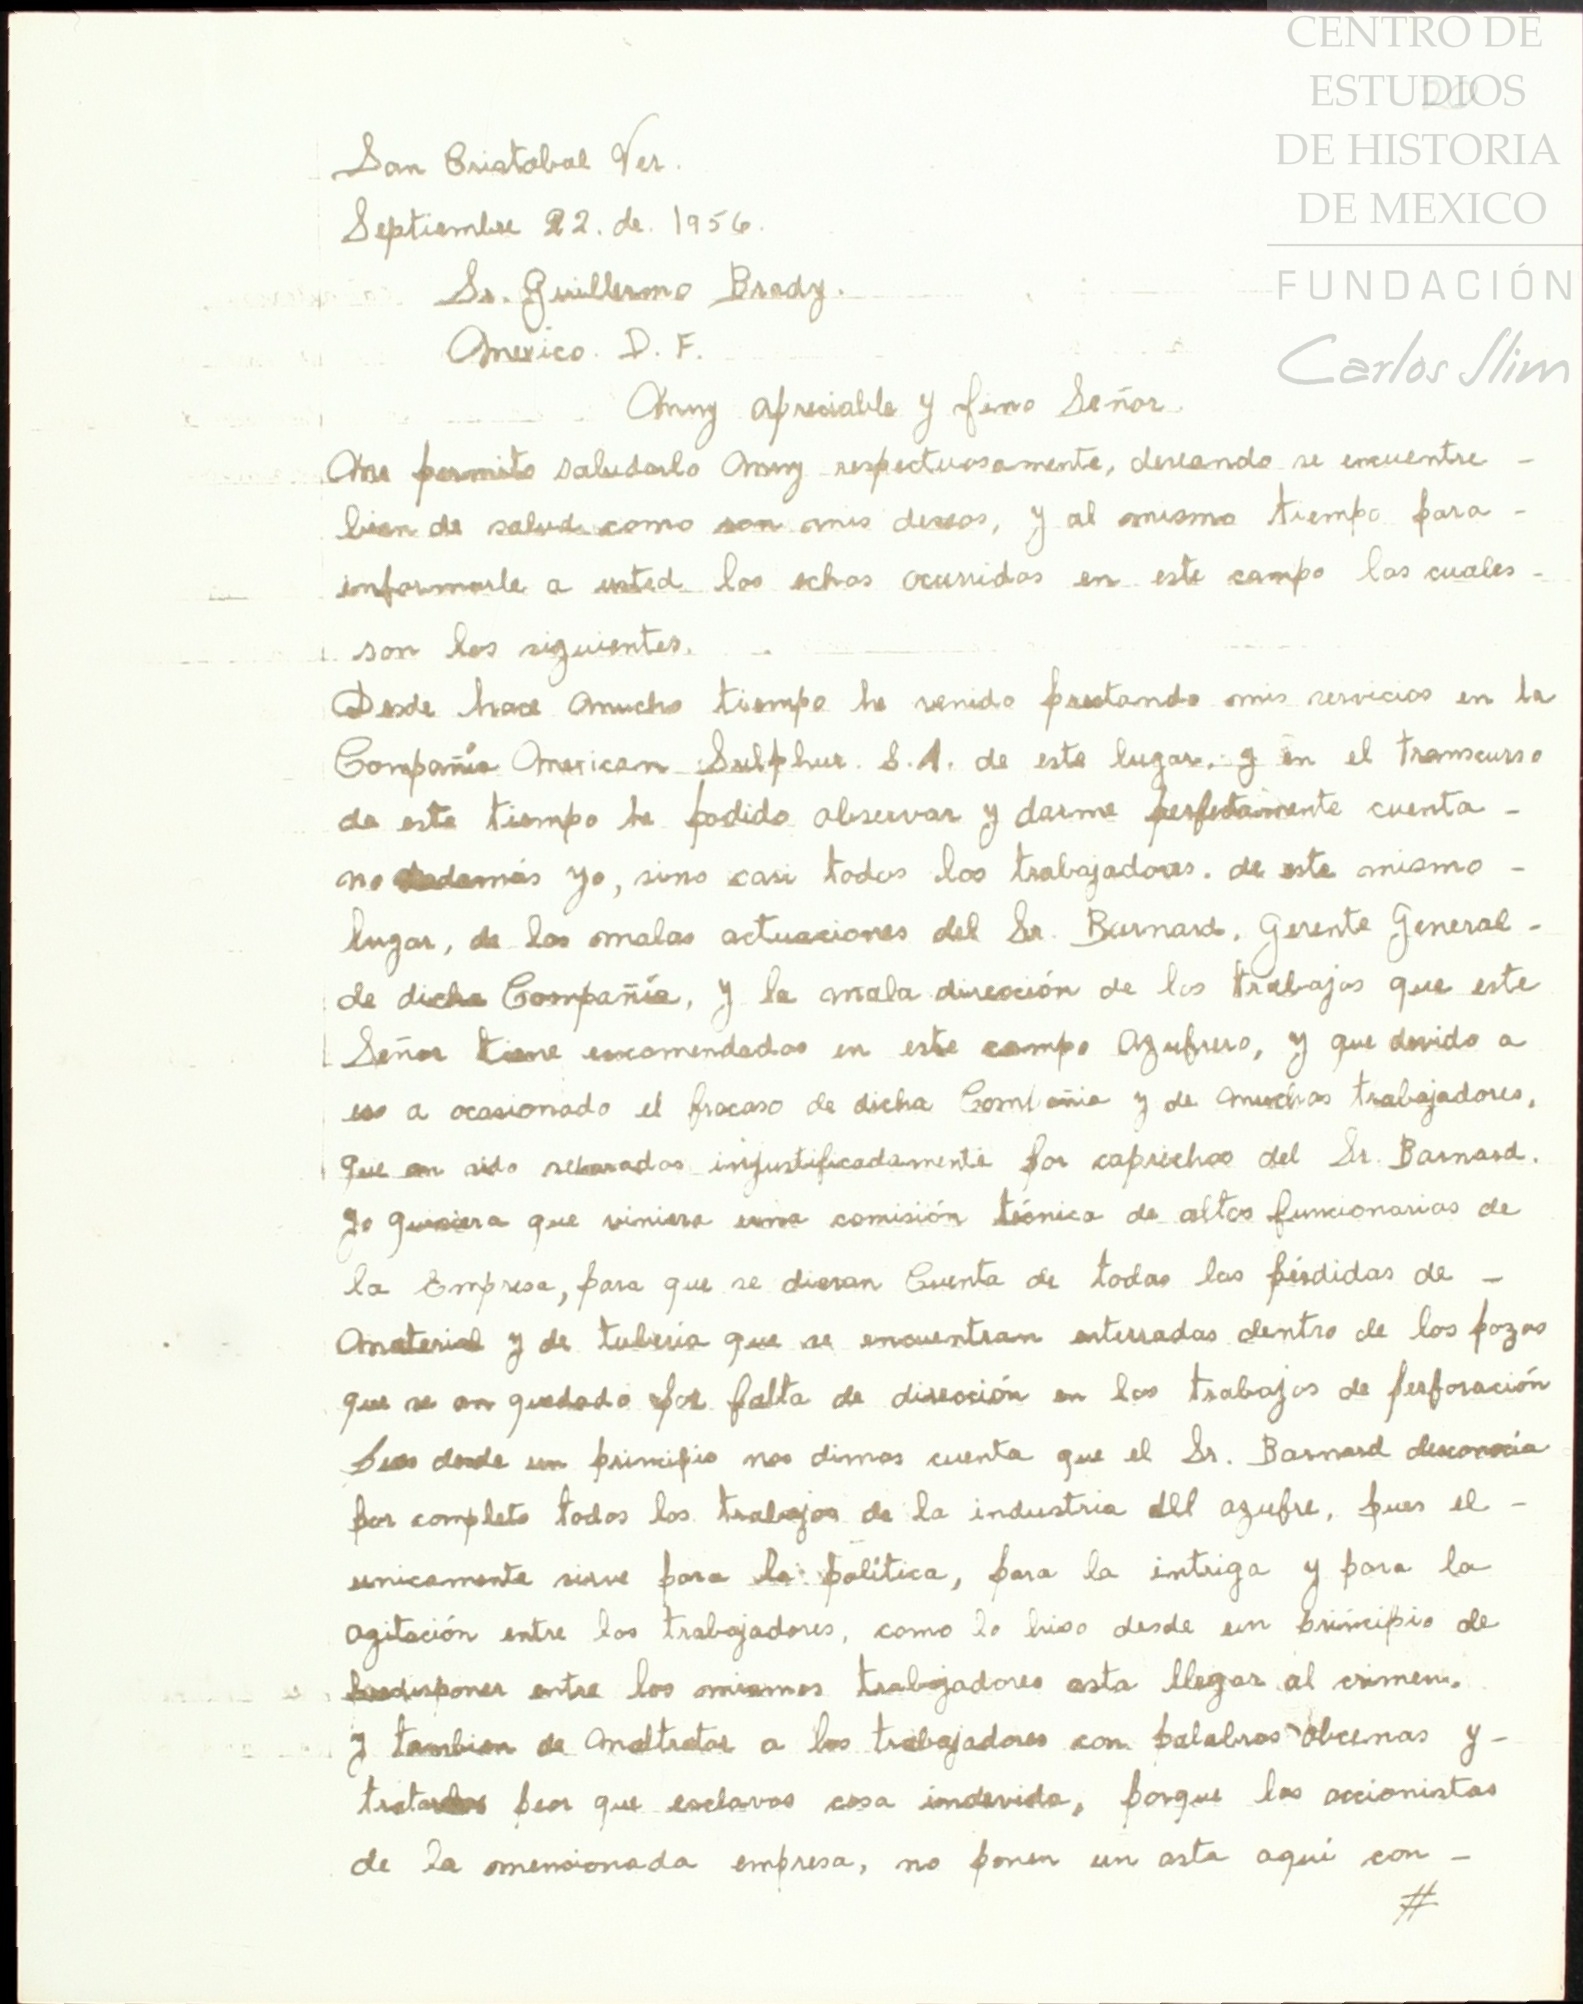 CENTRO DE
ESTUDIOS
DE HISTORIA
DE MEXICO
FUNDACIÓN
Carlos Slim
San Cristobal Ver.
Septiembre 22. de. 1956.
Sr. Guillermo Brady.
Mexico. D. F.
Muy apreciable y fino Señor.
Me permito saludarlo Muy respectuosamente, deseando se encuentre -
bien de salud como son mis deseos, y al mismo tiempo para -
informarle a usted los echos ocurridos en este campo los cuales -
son los siguientes.
Desde hace Mucho tiempo he venido prestando mis servicios en la
Compañia Mexican Sulphur. S. A. de este lugar, y en el transcurso
de este tiempo he podido observar y darme perfectamente cuenta -
no además yo, sino casi todos los trabajadores. de este mismo -
lugar, de las malas actuaciones del Sr. Barnard, Gerente General -
de dicha Compañia, y la mala dirección de los trabajos que este
Señor tiene encomendados en este campo Azufrero, y que devido a
eso a ocasionado el fracaso de dicha Compañia y de muchos trabajadores,
que an sido separados injustificadamente por caprichos del Sr. Barnard.
yo quisiera que viniera una comisión técnica de altos funcionarios de
la Empresa, para que se dieran Cuenta de todas las pérdidas de -
Material y de tuberia que se encuentran enterradas dentro de los pozos
que se an quedado por falta de dirección en los trabajos de perforación
pues desde un principio nos dimos cuenta que el Sr. Barnard desconocia
por completo todos los trabajos de la industria del azufre, pues el -
unicamente sirve para la política, para la intriga y para la
agitación entre los trabajadores, como lo hiso desde un principio de
predisponer entre los mismos trabajadores asta llegar al crimen.
y tambien de Maltratar a los trabajadores con palabras obcenas y -
tratarlos peor que esclavos cosa indevida, porque los accionistas
de la mencionada empresa, no ponen un asta aqui con -
#